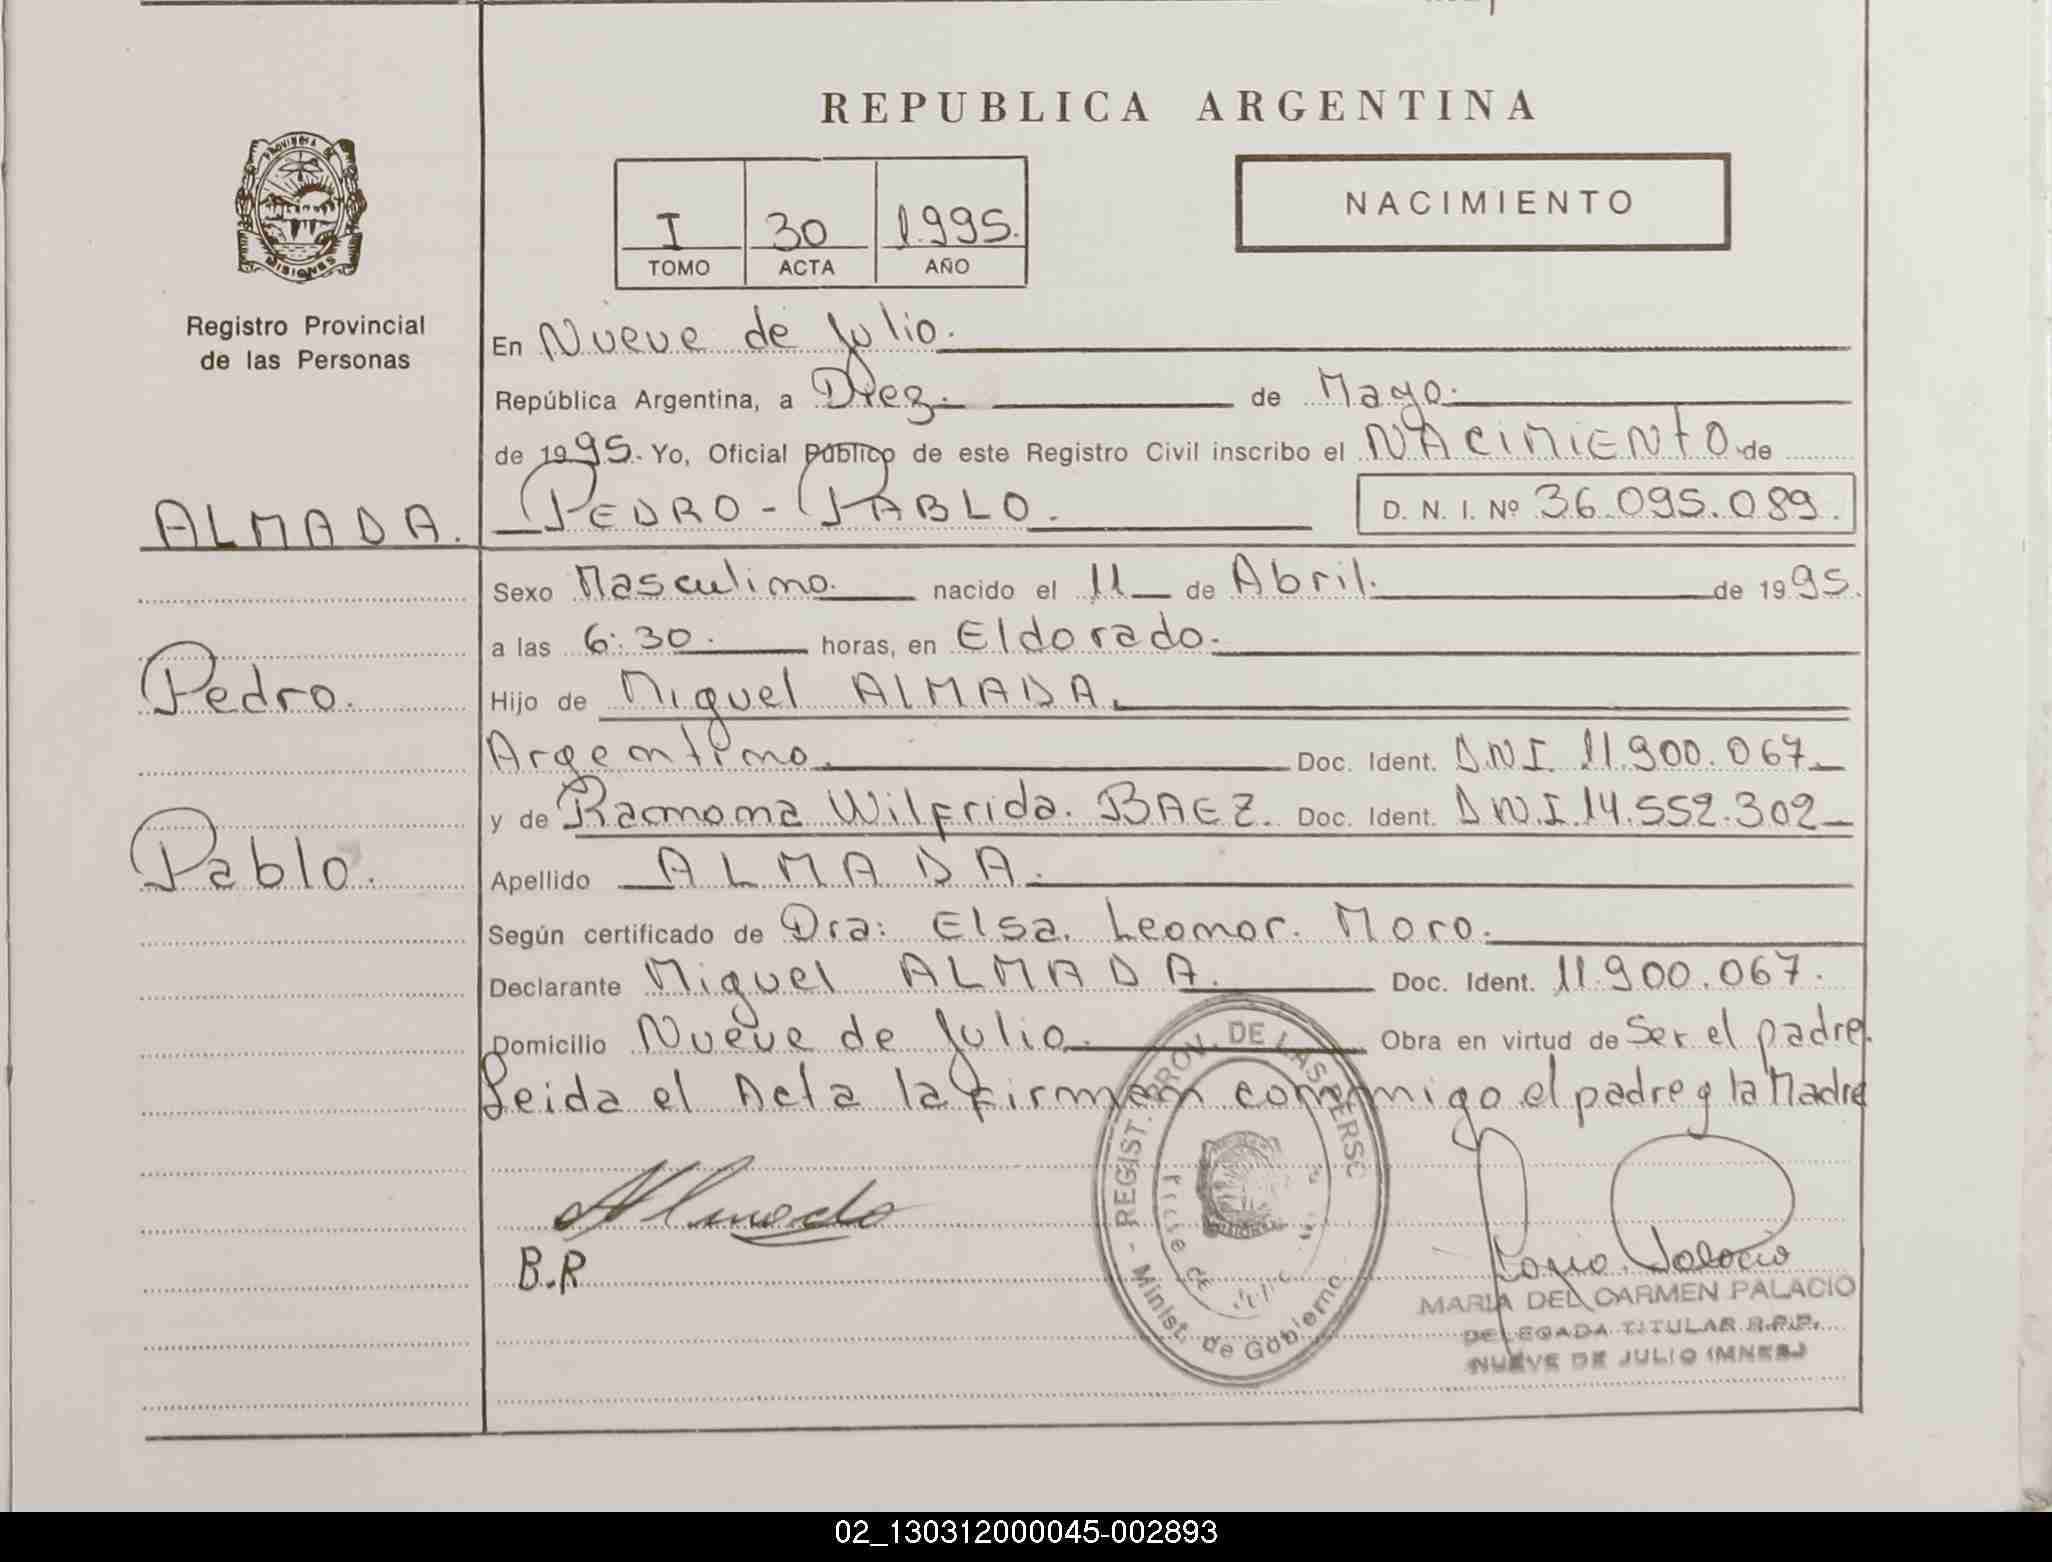 REPUBLICA ARGENTINA
PROVINCIA DE
MISIONES
Registro Provincial
de las Personas
I 30 1.995.
TOMO ACTA AÑO
NACIMIENTO
En Nueve de Julio.
República Argentina, a Diez. de Mayo.
de 1995. Yo, Oficial Público de este Registro Civil inscribo el NACIMIENTO de
ALMADA.
PEDRO - PABLO. D. N. I. Nº 36.095.089.
Sexo Masculino. nacido el 11 de Abril. de 1995.
a las 6:30. horas, en Eldorado.
Pedro.
Hijo de Miguel ALMADA.
Argentino. Doc. Ident. D.N.I. 11.900.067
y de Ramona Wilfrida. BAEZ. Doc. Ident. D.N.I. 14.552.302
Pablo.
Apellido ALMADA.
Según certificado de Dra: Elsa. Leonor. Moro.
Declarante Miguel ALMADA. Doc. Ident. 11.900.067.
Domicilio Nueve de Julio. Obra en virtud de Ser el padre.
Leida el Acta la firman conmigo el padre y la Madre
Almada
B.R
REGIST. PROV. DE LAS PERSO
Minist. de Gobierno
MARIA DEL CARMEN PALACIO
DELEGADA TITULAR R.P.P.
NUEVE DE JULIO (MNES.)
02_130312000045-002893